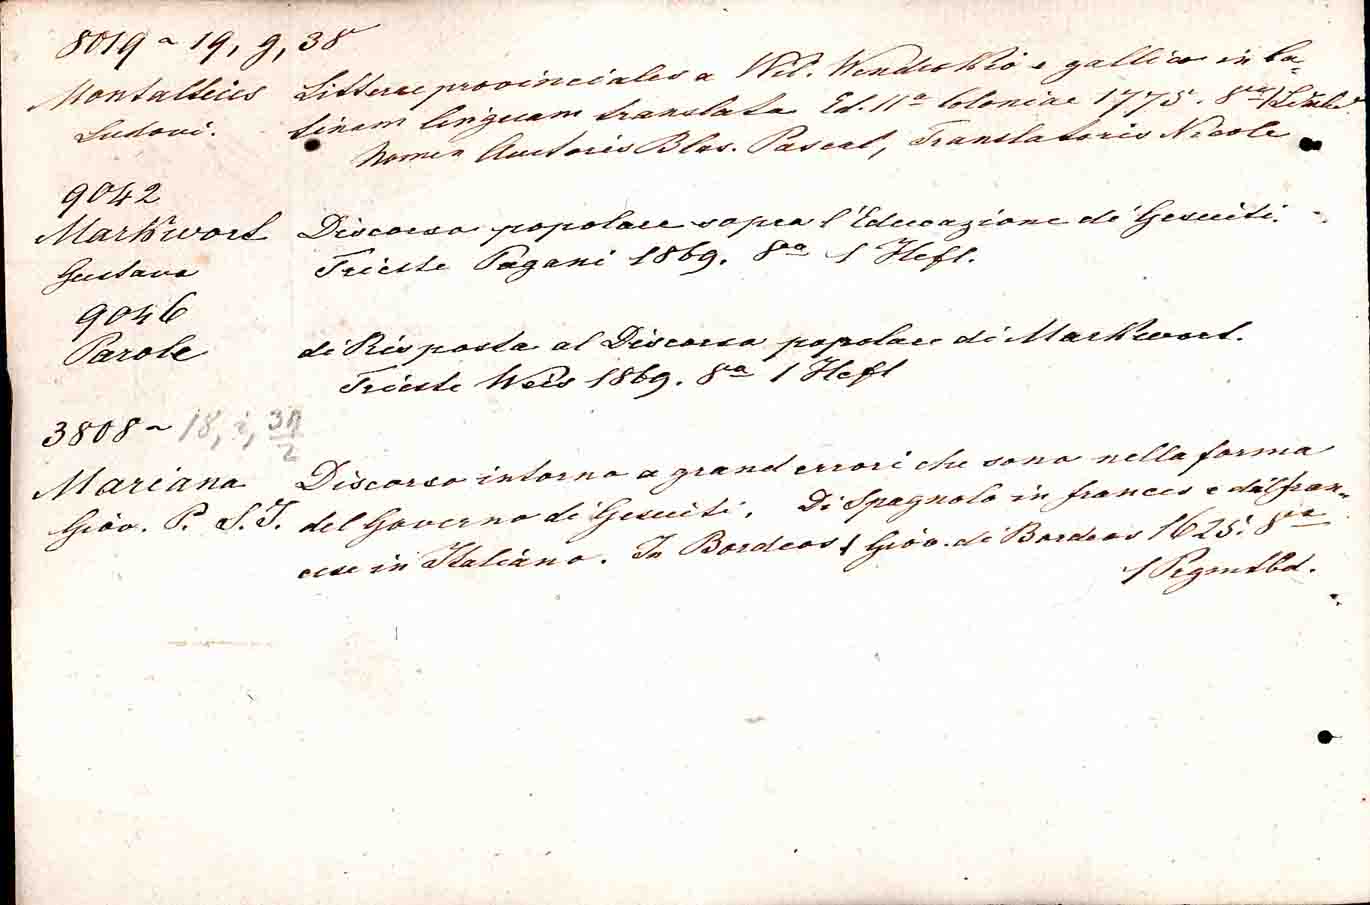 8019 ~ 19, g, 38
Montaltius Litterae provinciales a Wil. Wendrokio e gallica in la-
Ludovi. tinam linguam translata Ed. 11a Coloniae 1775. 8vo 1
Nomen Auctoris Blas. Pascal, Translatoris Nicole
9042
Markwort Discorso popolare sopra l'Educazione di Gesuiti.
Gustavo Trieste Pagani 1869. 8vo 1 Heft.
9046
Parole di Risposta al Discorso popolare di Markwort.
Trieste Weis 1869. 8a 1 Heft
3808 ~ 18, i, 37/2
Mariana Discorso intorno a grand errori che sono nella forma
Giov. P. S.J. del Governo di Gesuiti. Di Spagnolo in frances e dal fran-
cese in Italiano. In Bordeos Giov. di Bordeos 1625. 8vo
1 Pegmtbd.